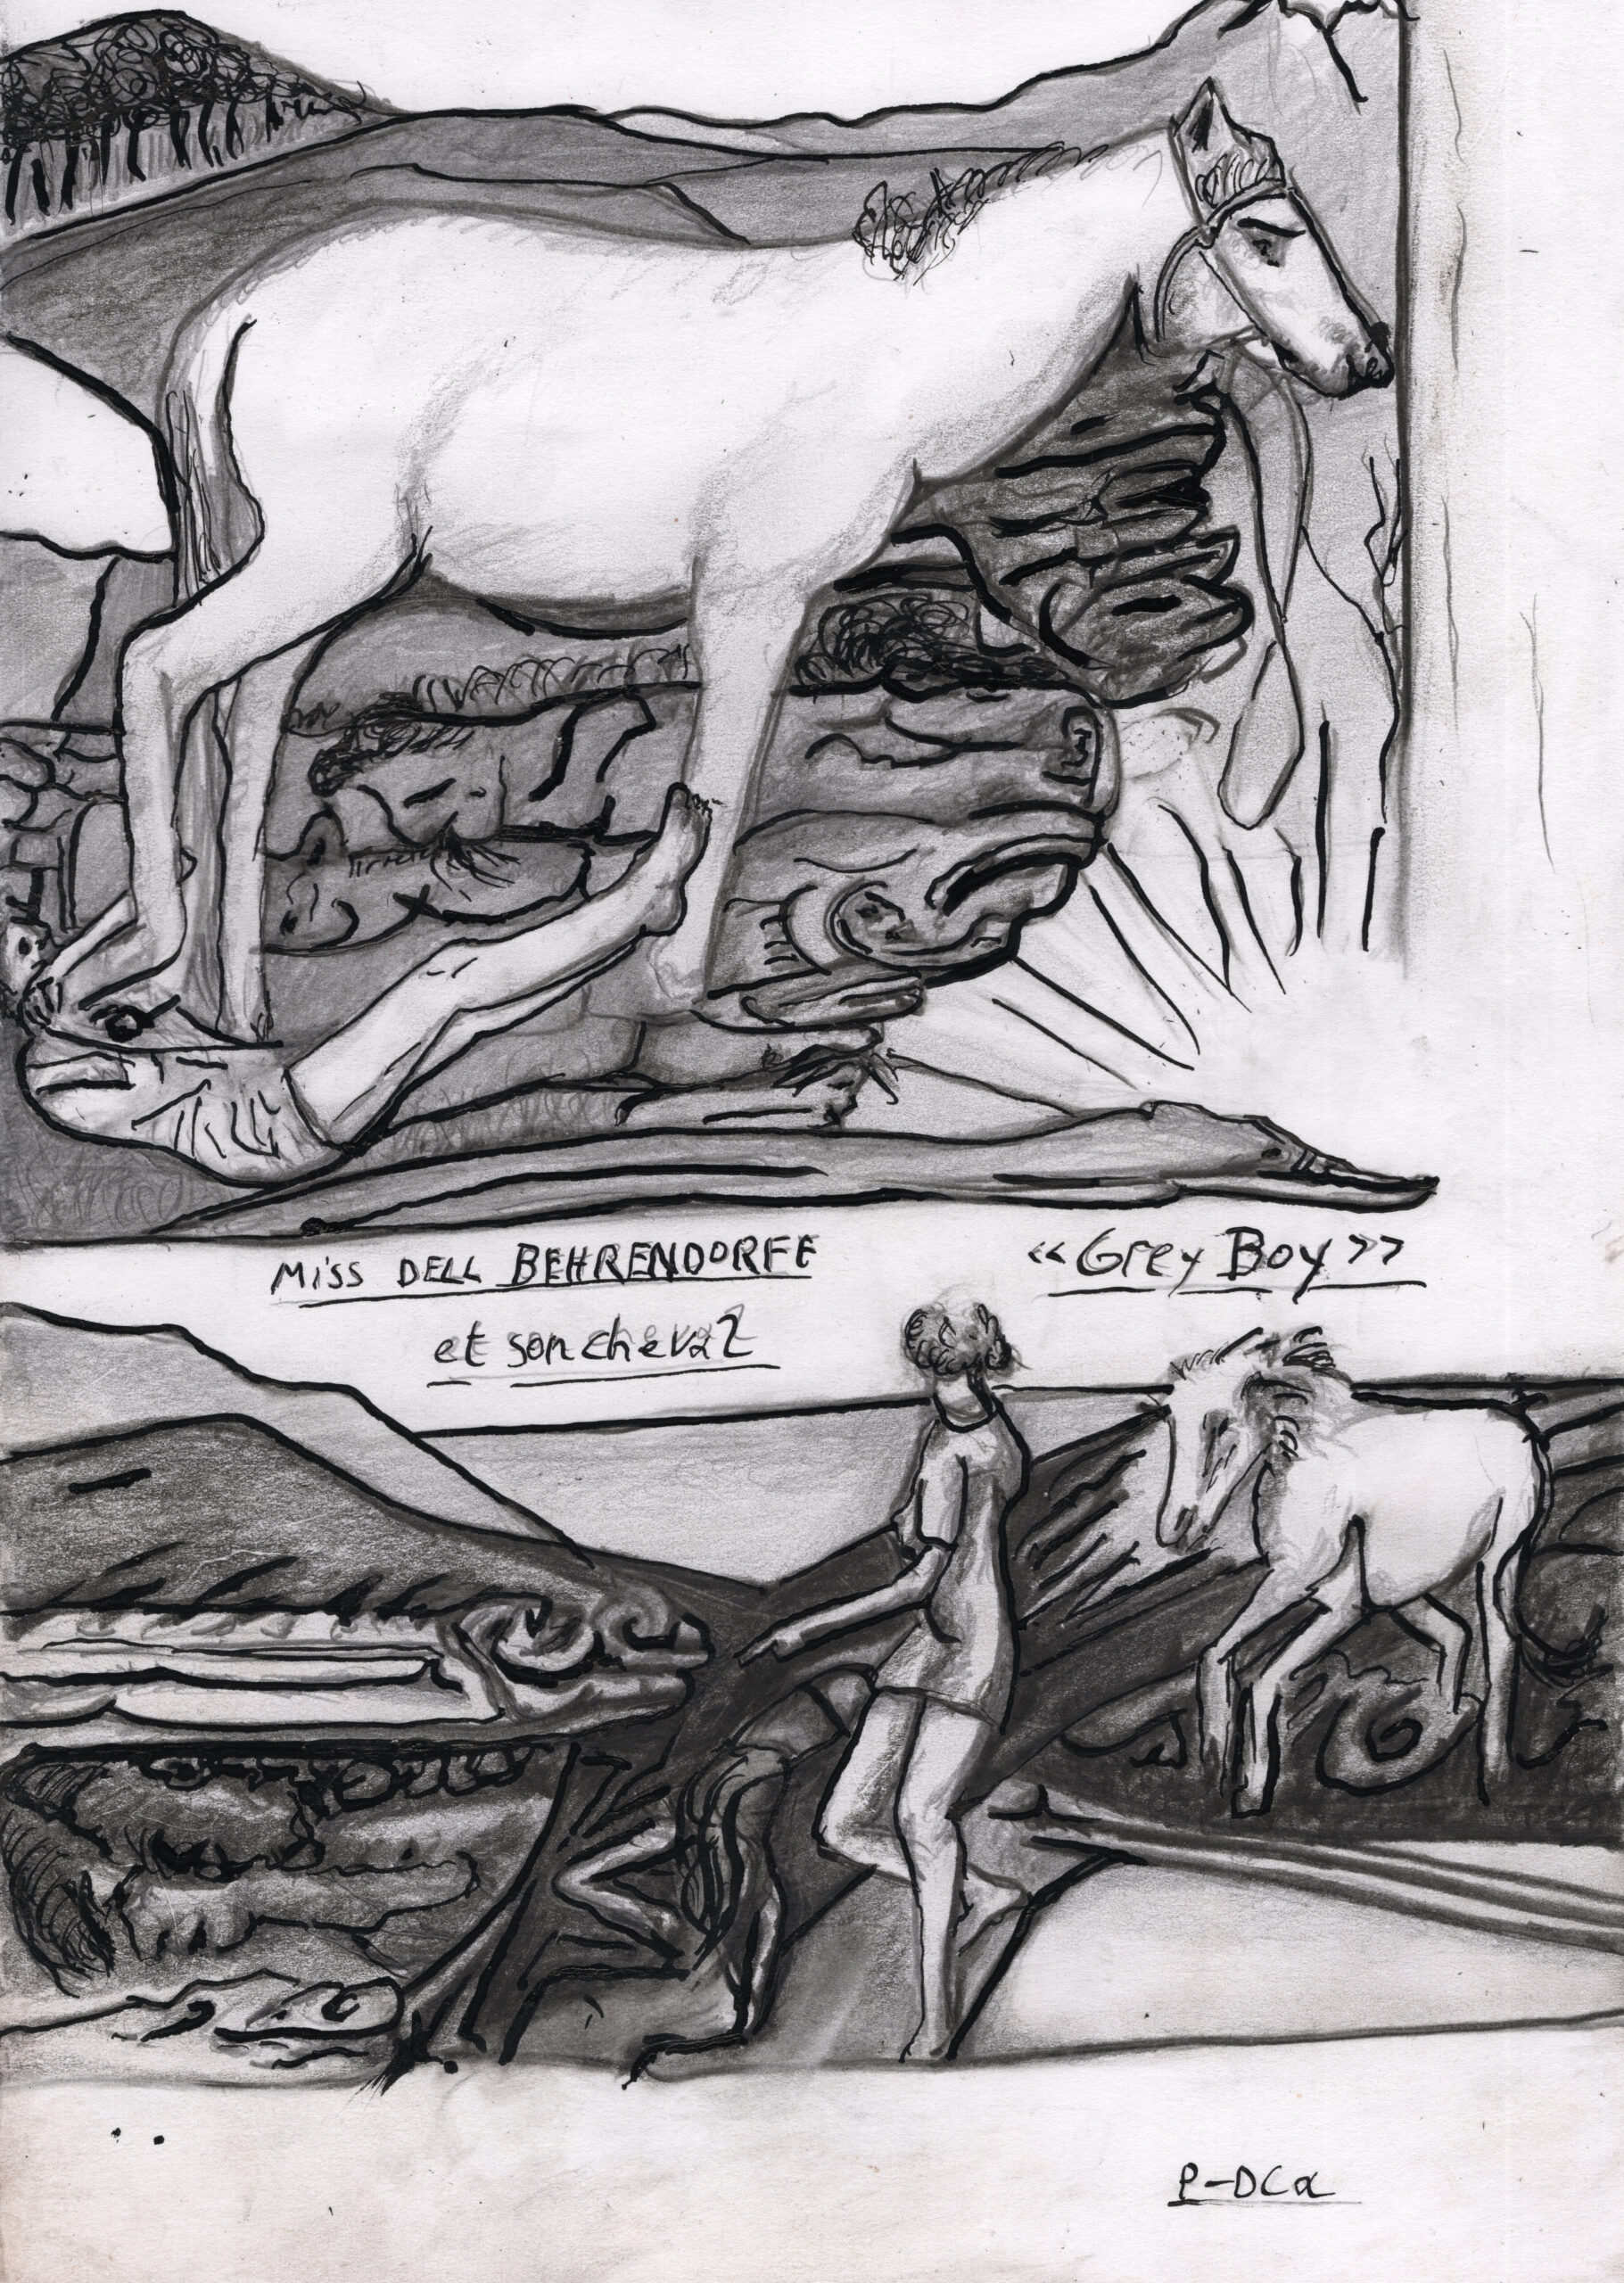 Miss DELL BEHRENDORFF
et son cheval
<< Grey Boy >>
P-DCα